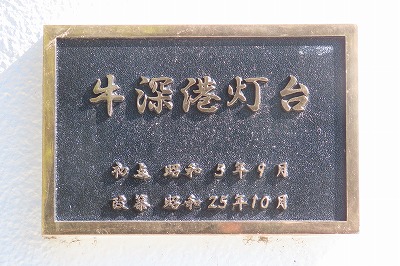 牛深港灯台
初点 昭和 5年9月
改築 昭和 25年10月